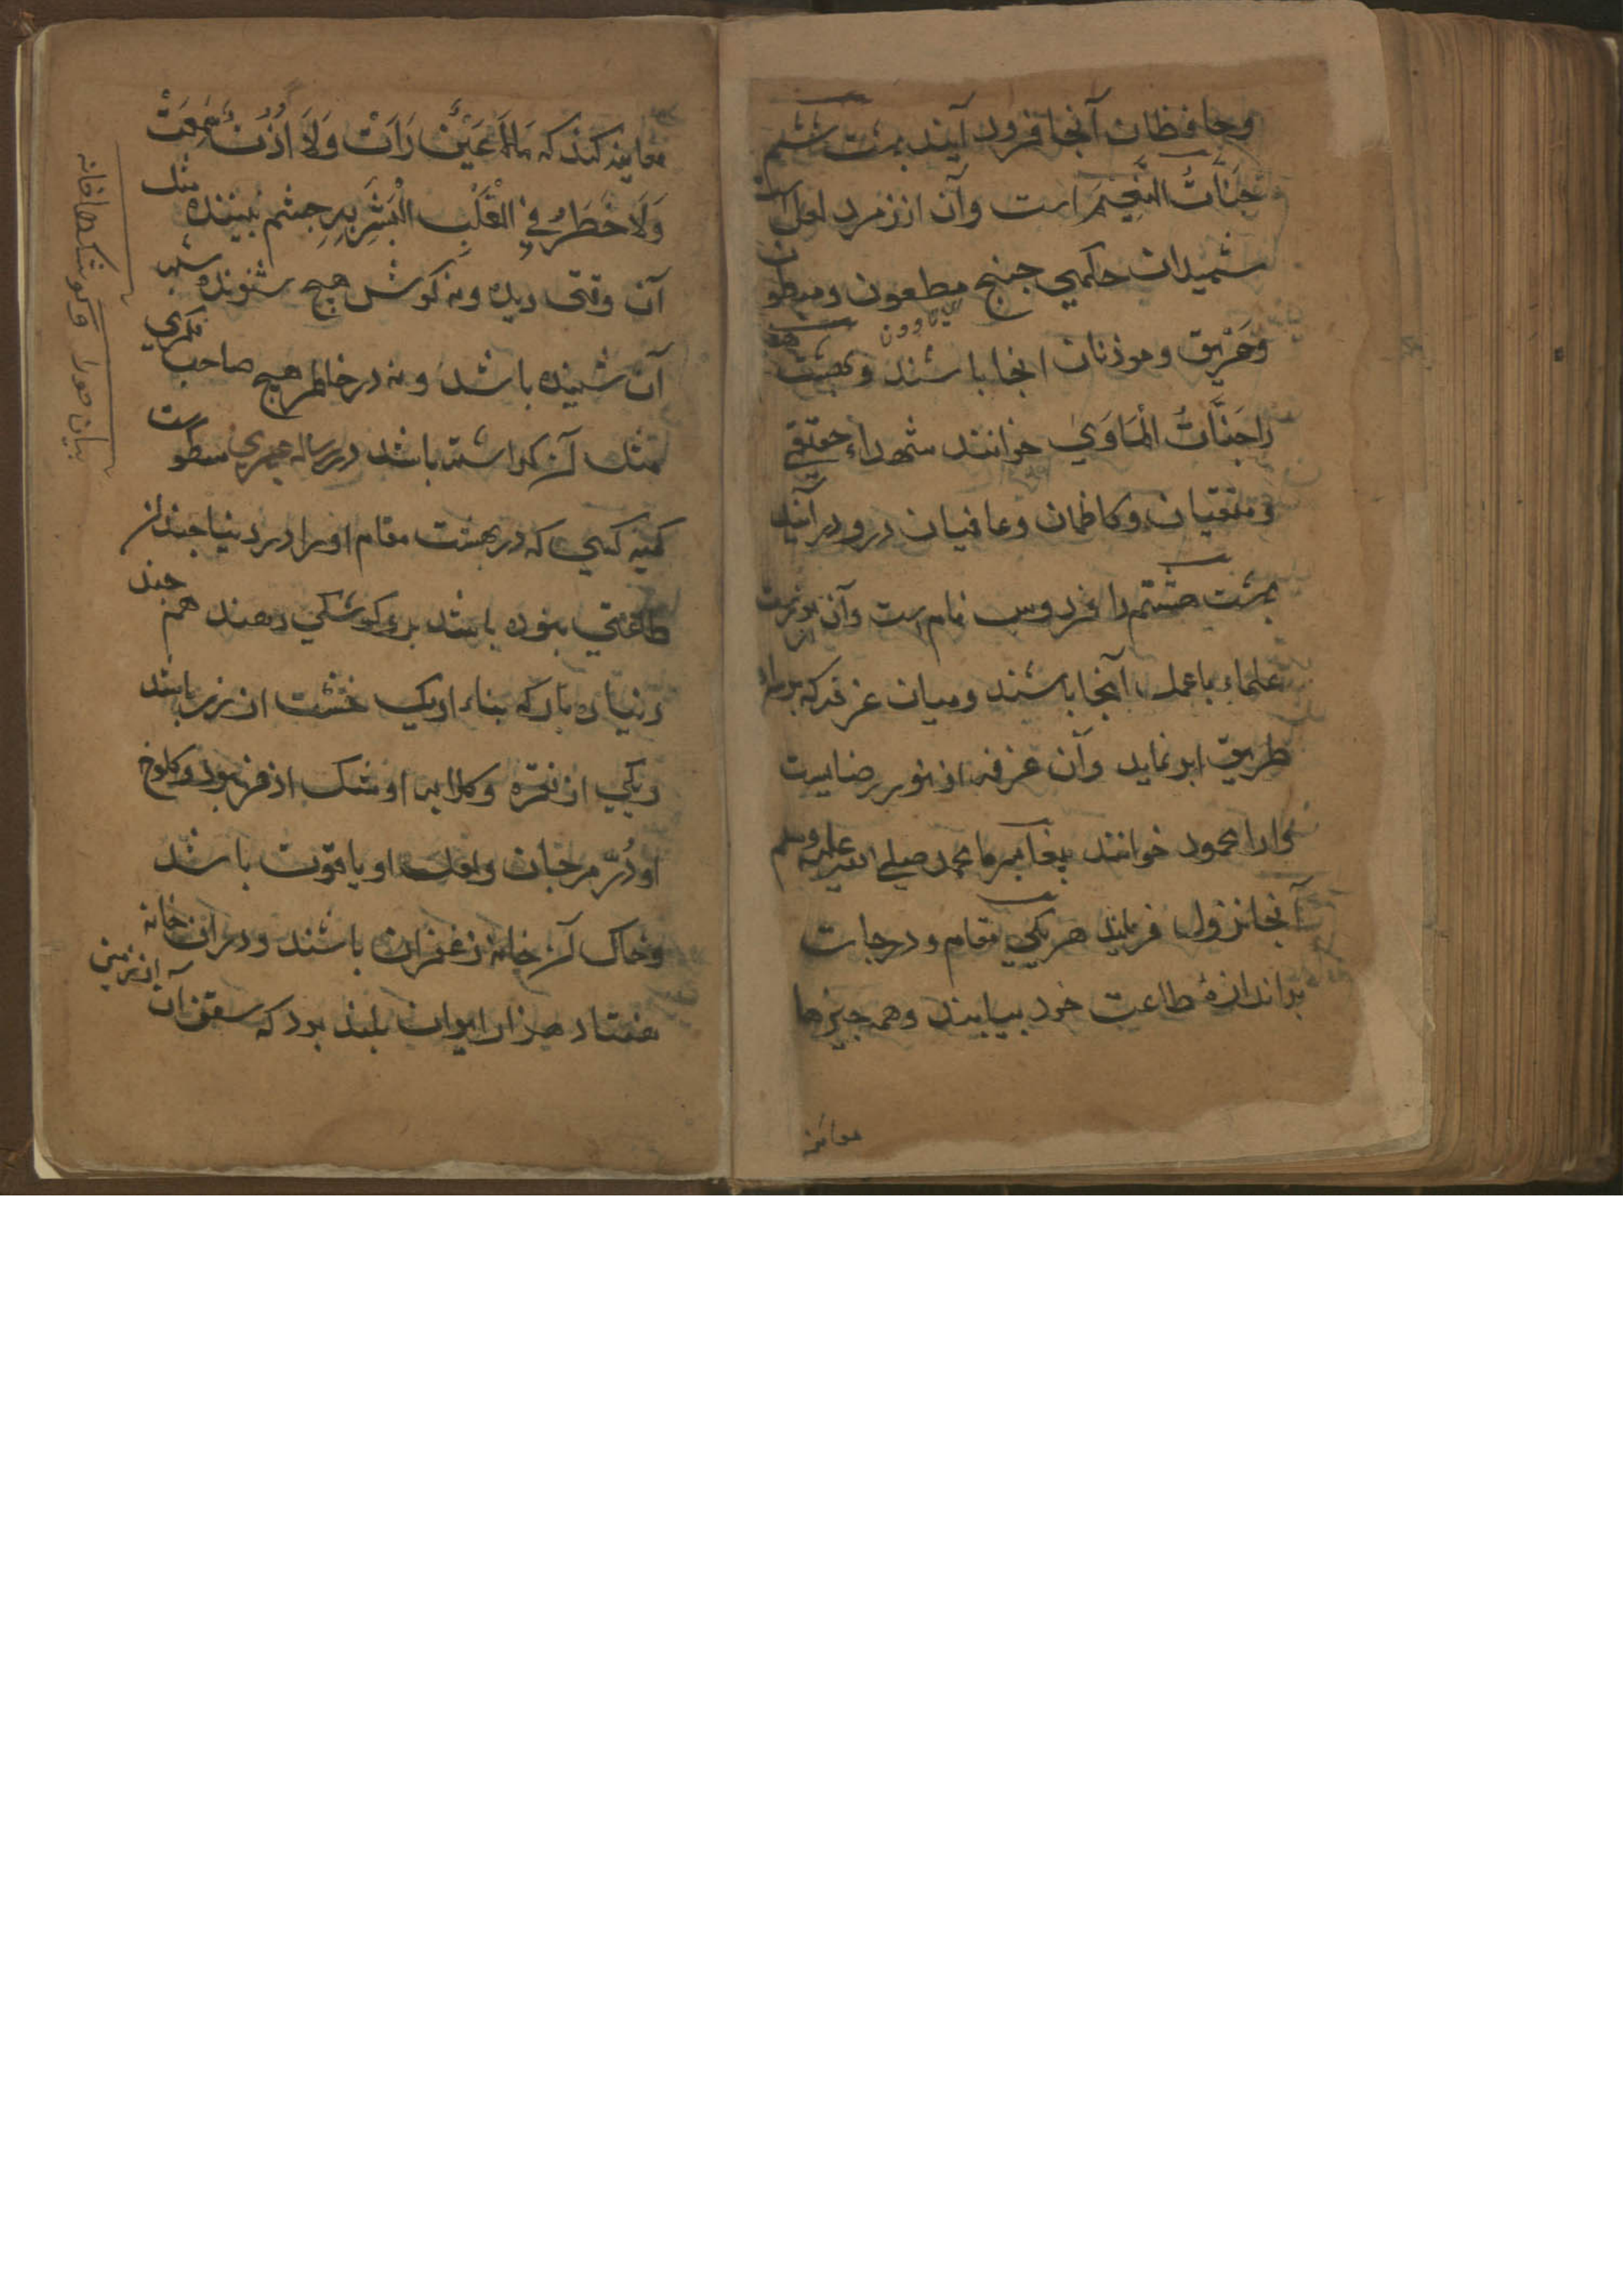 وحافظان آنجا فرود آیند بهشت ششم
جَنَّاتُ النَّعِیْمَ است وآن از زمرد لعل است
شهیدان حکمی جنبج مطعون و مبطون
وحَرْیق و موذنان انجا باشند و بهشت هفتم
را جَنَّاتُ الْمَاوَیٰ خوانند شهداء حقیقی
و متقیان و کاظمان و عافیان درو درآیند
بهشت هشتم را فردوس نام است وآن از نورست
علماء باعمل آنجا باشند ومیان غرفه که بر
طریق ابر نماید وآن غرفه از نور رضاییت
محمود خوانند پیغامبر ما محمد صلی الله علیه وسلم
آنجا نزول فرماید هر یکی مقام و درجات
بر اندازهٔ طاعت خود بیابند وهمه چیزها
معاینه
معاینه کنند که مَالَا عَیْنٌ رَاَتْ وَلَا اُذُنٌ سَمِعَتْ
وَلَا خَطَرُ فِی الْقَلْبِ الْبَشَرِ چشم بیننده مثل
آن وقتی دیده ونه کوش هیچ شنونده شبه
آن شنیده باشد ونه در خاطر هیچ صاحب فکری
مثل آن کذاشته باشد در رساله مسطورست
کمینه کسی که در بهشت مقام او را در دنیا چندان
طاعتی نبوده باشد برو کوشکی دهند هم چند
دنیا ده بار که بناء او یک خشت از زر باشد
ویکی از نقره وکلابه او مشک اذفر بود وکلوخ
او دُرّ مرجان ولعل او یاقوت باشد
وخاک آن خانه زعفران باشند و دران خانه
هفتاد هزار ایوان بلند بود که سقف آن از زمین
بیان حورا و کوشکها خانه